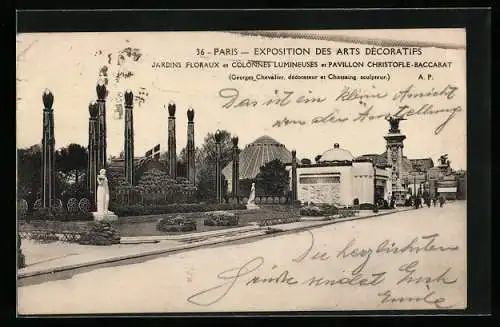 36 - PARIS - EXPOSITION DES ARTS DÉCORATIFS
JARDINS FLORAUX et COLONNES LUMINEUSES et PAVILLON CHRISTOFLE-BACCARAT
(Georges Chevalier, décorateur et Chassaing, sculpteur.) A. P.
Das ist ein klein Ansicht
von der Ausstellung
Die herzlichsten
Grüsse sendet Euch
Emile